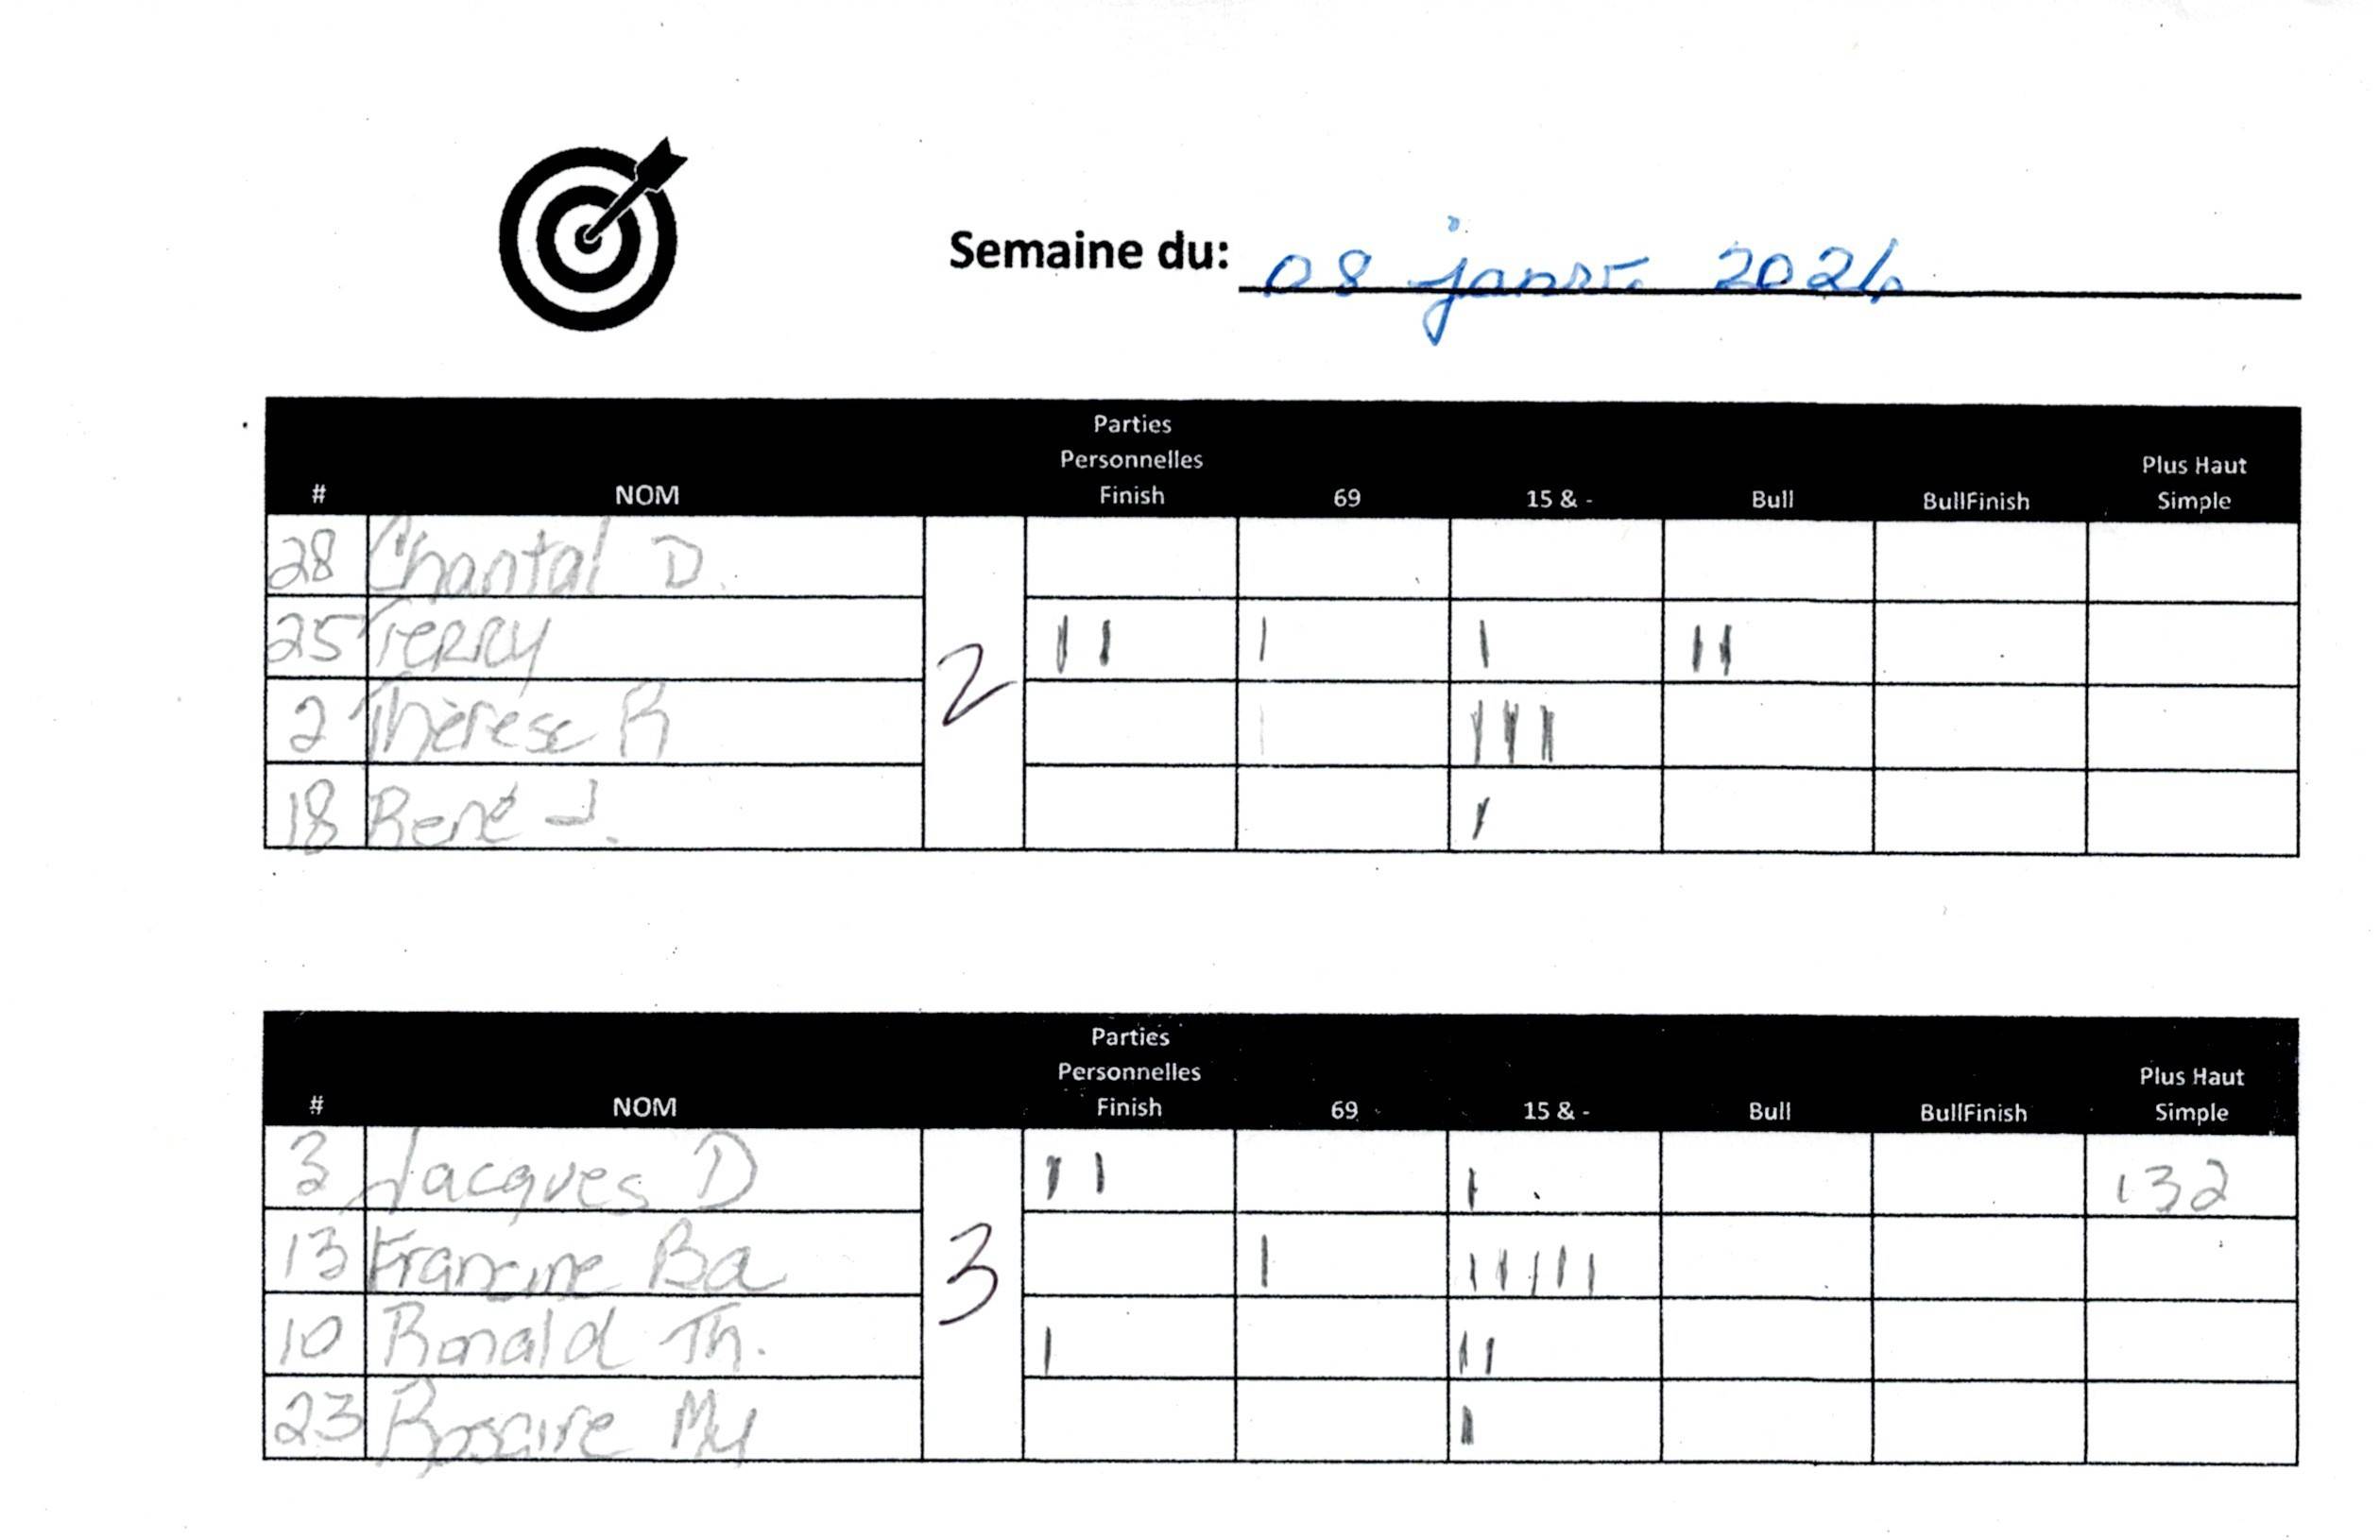 Semaine du: 08 janv. 2024
Parties
Personnelles
Plus Haut
# NOM Finish 69 15 & - Bull BullFinish Simple
28 Chantal D.
25 TERRY II I I II
2 Thérèse R I III
18 René J. I
2
Parties
Personnelles
Plus Haut
# NOM Finish 69 15 & - Bull BullFinish Simple
3 Jacques D II I 132
13 Francine Ba I IIIII
10 Ronald Th. I II
23 Rosaire My I
3